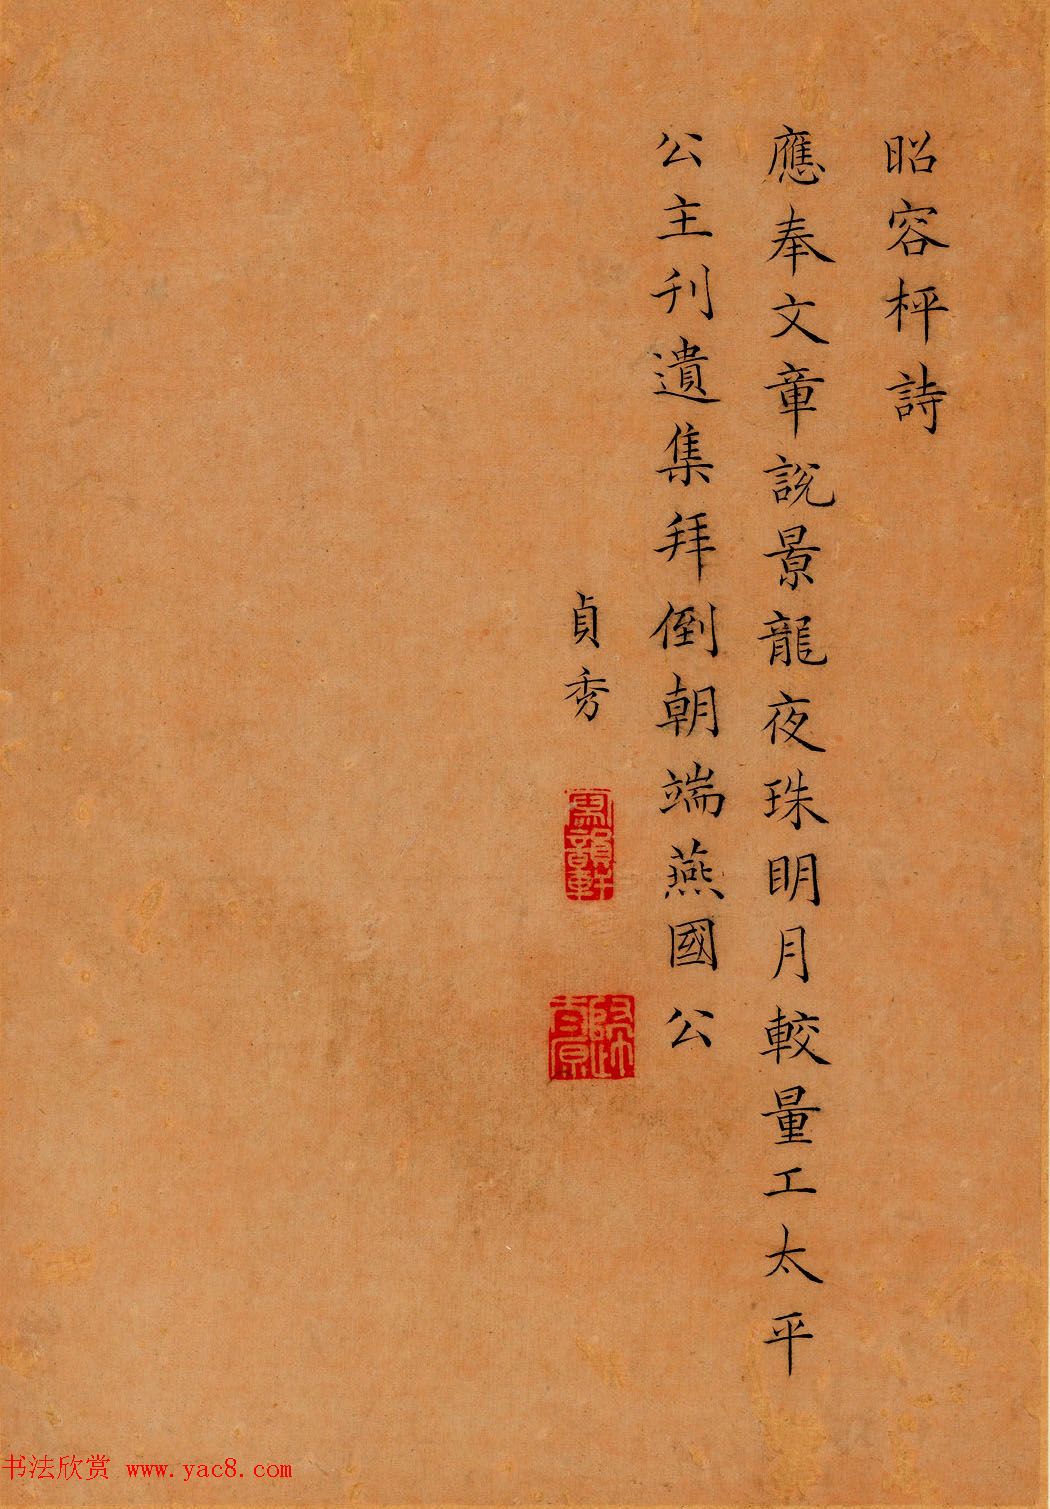 昭容枰詩
應奉文章說景龍夜珠明月較量工太平
公主刊遺集拜倒朝端燕國公
貞秀
寫韻軒
书法欣赏 www.yac8.com